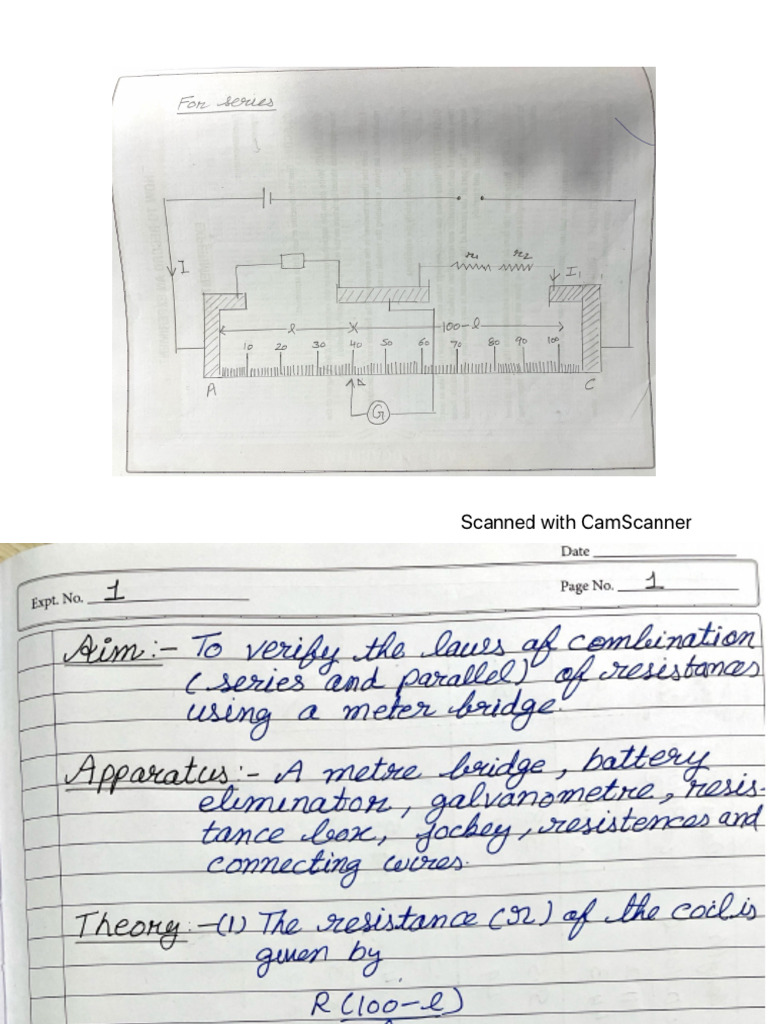 For series
I
r1 r2
I1
l
100-l
10 20 30 40 50 60 70 80 90 100
A
C
G
Scanned with CamScanner
Date
Expt. No. 1
Page No. 1
Aim:- To verify the laws of combination
(series and parallel) of resistances
using a meter bridge.
Apparatus:- A metre bridge, battery
eliminator, galvanometre, resis-
tance box, jockey, resistences and
connecting wires.
Theory:-(1) The resistance (r) of the coil is
given by
R(100-l)